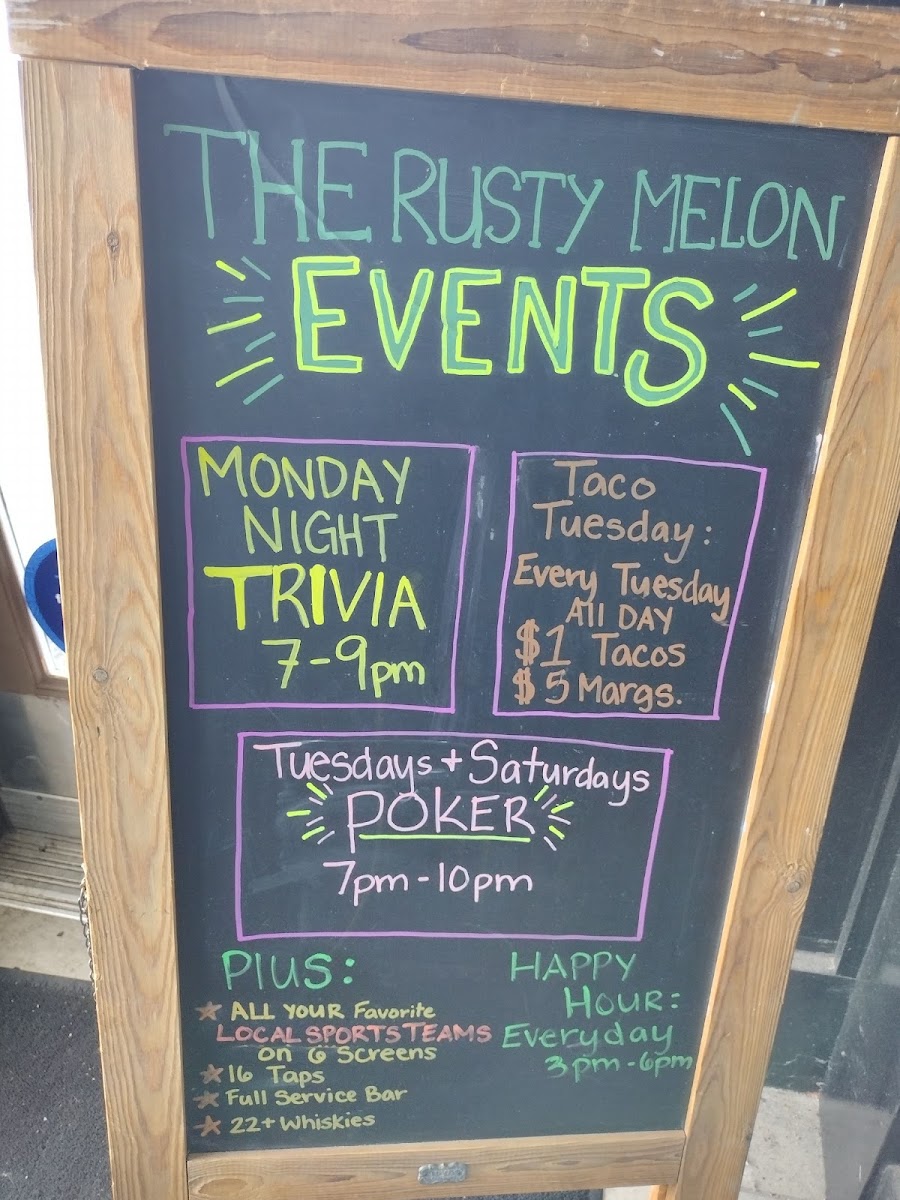 THE RUSTY MELON
EVENTS
MONDAY
NIGHT
TRIVIA
7-9pm
Taco
Tuesday:
Every Tuesday
All DAY
$1 Tacos
$5 Margs.
Tuesdays + Saturdays
POKER
7pm-10pm
PlUS:
ALL YOUR Favorite
LOCAL SPORTS TEAMS
on 6 Screens
16 Taps
Full Service Bar
22+ Whiskies
HAPPY
HOUR:
Everyday
3pm-6pm